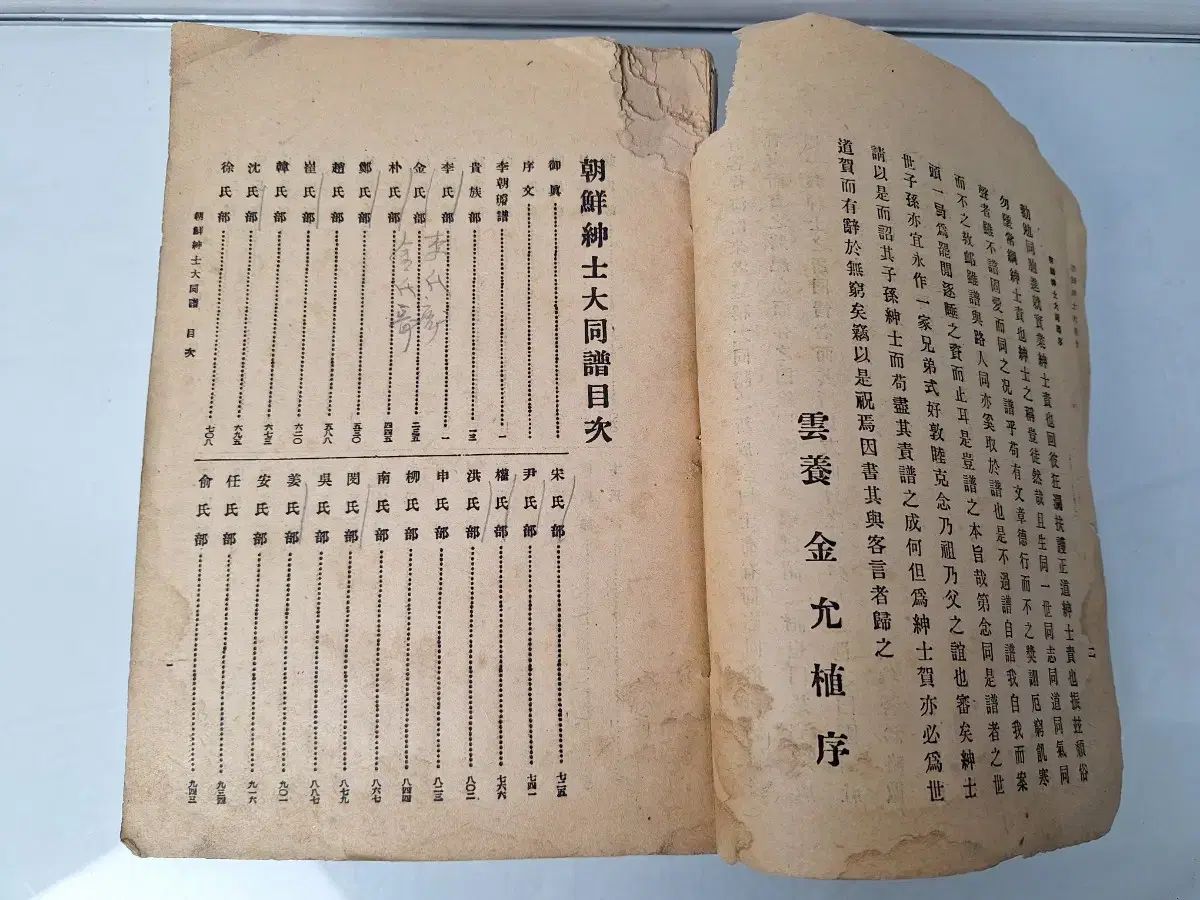 二
勸勉同胞進就實業紳士責也回彼狂瀾扶護正道紳士責也振玆頹俗
勿墜常綱紳士責也紳士之稱豈徒然哉且生同一世同志同道同氣同
聲者雖不譜固愛而同之况譜乎苟有文章德行而不之奬詡厄窮飢寒
而不之救卹雖譜與路人同亦奚取於譜也是不過譜自譜我自我而案
頭一卷爲罷閒逐睡之資而止耳是豈譜之本旨哉第念同是譜者之世
世子孫亦宜永作一家兄弟式好敦睦克念乃祖乃父之誼也審矣紳士
請以是而詔其子孫紳士而苟盡其責譜之成何但爲紳士賀亦必爲世
道賀而有辭於無窮矣竊以是祝焉因書其與客言者歸之
雲養 金允植序
朝鮮紳士大同譜目次
御眞
序文
李朝璿譜 一
貴族部 一三
李氏部 一
金氏部 二三五
朴氏部 四四五
鄭氏部 五三〇
趙氏部 五八八
崔氏部 六二〇
韓氏部 六七三
沈氏部 六九五
徐氏部 七〇八
李氏
金氏
宋氏部 七二五
尹氏部 七四一
權氏部 七六六
洪氏部 八〇二
申氏部 八二三
柳氏部 八四四
南氏部 八六七
閔氏部 八七九
吳氏部 八八七
姜氏部 九〇一
安氏部 九一六
任氏部 九三四
兪氏部 九四三
朝鮮紳士大同譜 目次
一